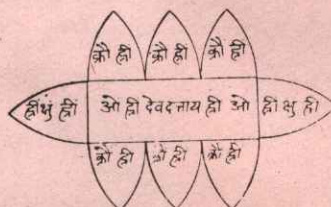 क्रौ ह्री क्रौ ह्री क्रौ ह्री
ह्रीं क्षुं ह्रीं ओ ह्री देवदत्ताय ह्री ओ ह्री क्षु ह्री
क्रौ ह्री क्रौ ह्री क्रौ ह्री